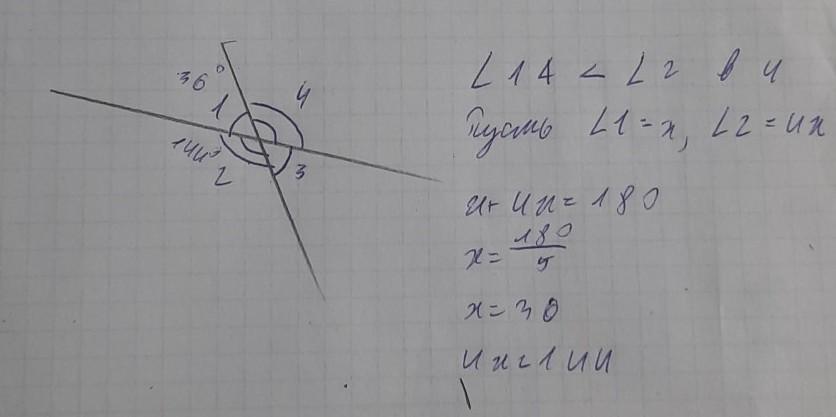 36°
1 4
144°
2 3
∠1 4 < ∠2 в 4
Пусть ∠1 = x, ∠2 = 4x
x + 4x = 180
x = 180/5
x = 30
4x = 144